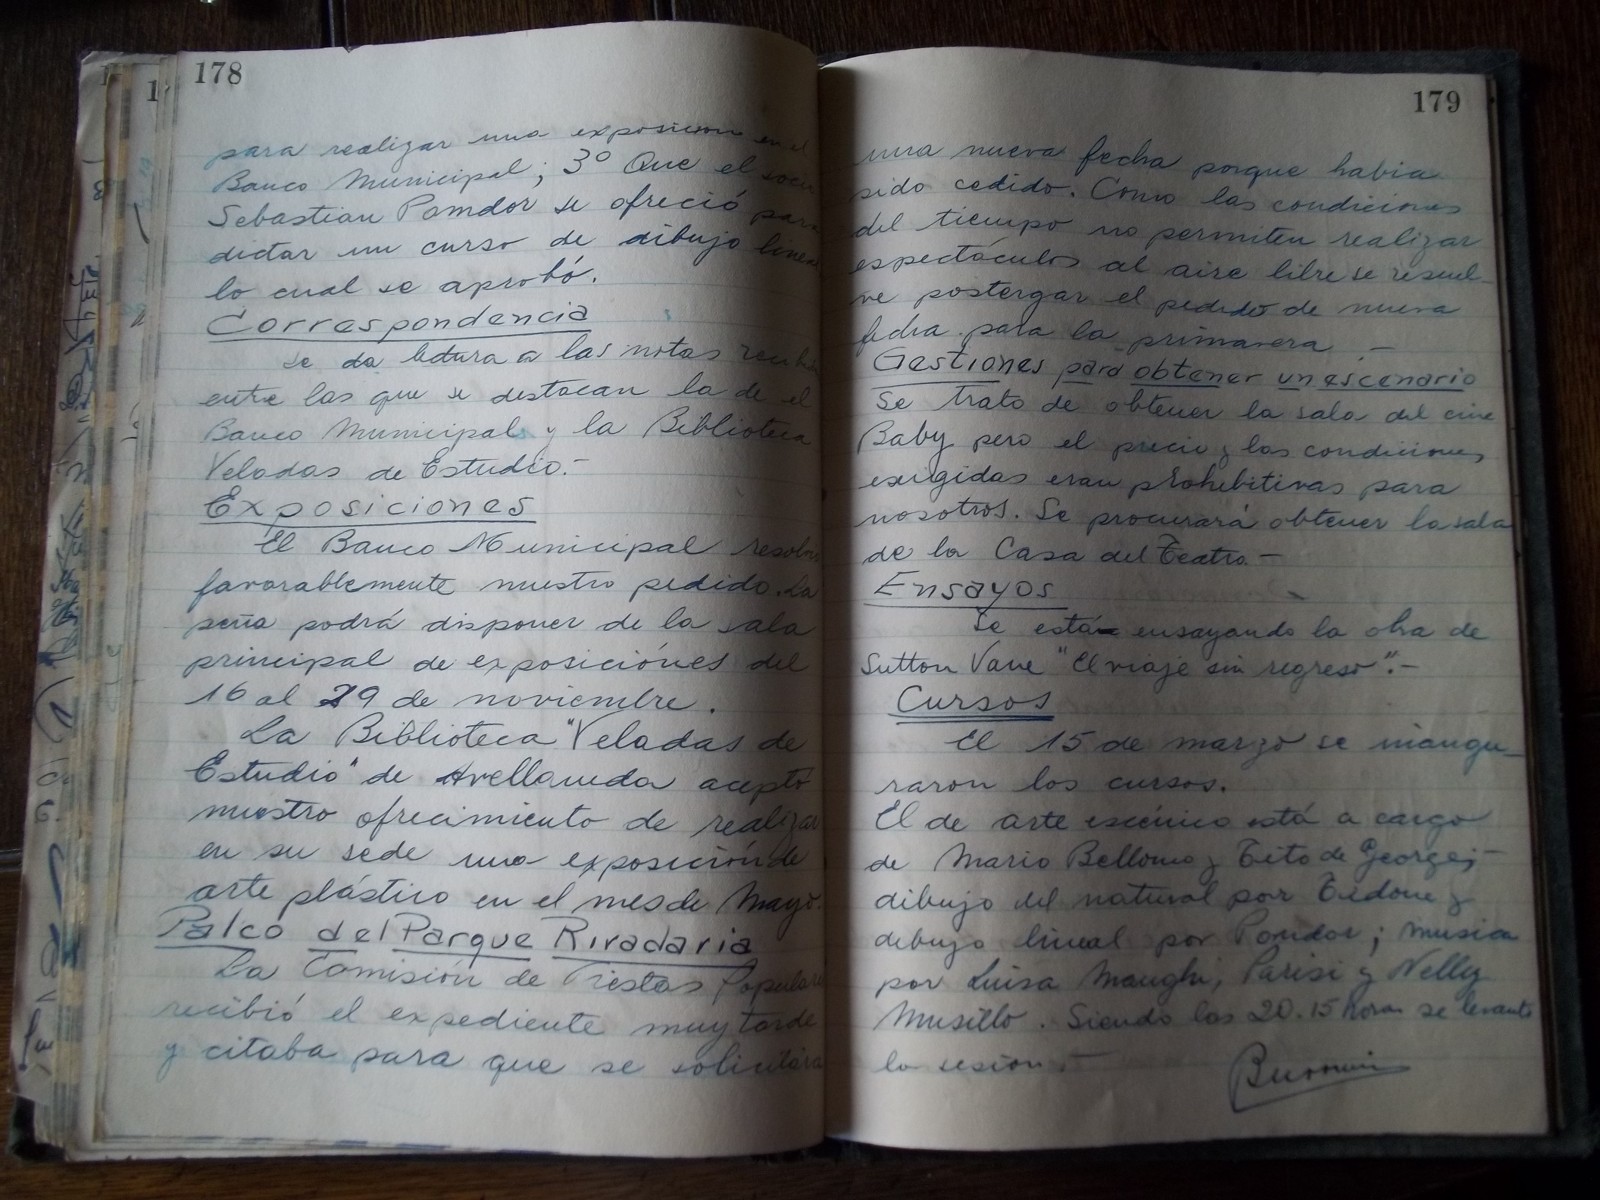 178
para realizar una exposicion en el
Banco Municipal; 3º Que el
Sebastian Pomdor se ofreció para
dictar un curso de dibujo lineal
lo cual se aprobó.
Correspondencia
se da lectura a las notas
entre las que se destacan la de el
Banco Municipal y la Biblioteca
Veladas de Estudio.-
Exposiciones
El Banco Municipal
favorablemente nuestro pedido. La
peña podrá disponer de la sala
principal de exposiciónes del
16 al 29 de noviembre.
La Biblioteca "Veladas de
Estudio" de Avellaneda aceptó
nuestro ofrecimiento de realizar
en su sede una exposición de
arte plástico en el mes de Mayo.
Palco del Parque Rivadavia
La Comisión de Fiestas Populares
recibió el expediente muy tarde
y citaba para que se solicitára
179
una nueva fecha porque habia
sido cedido. Como las condiciones
del tiempo no permiten realizar
espectáculos al aire libre se resuel-
ve postergar el pedido de nueva
fecha para la primavera.-
Gestiones para obtener un escenario
Se trato de obtener la sala del cine
Baby pero el precio y las condiciones
exigidas eran prohibitivas para
nosotros. Se procurará obtener la sala
de la Casa del Teatro.-
Ensayos
Se está ensayando la obra de
Sutton Vane "El viaje sin regreso".-
Cursos
El 15 de marzo se inaugu-
raron los cursos.
El de arte escénico está a cargo
de Mario Bellomo y Tito de George;
dibujo del natural por Tedone y
dibujo lineal por Pomdor; musica
por Luisa Maughi, Parisi y Nelly
Musillo. Siendo las 20.15 horas se levanta
la sesión.-